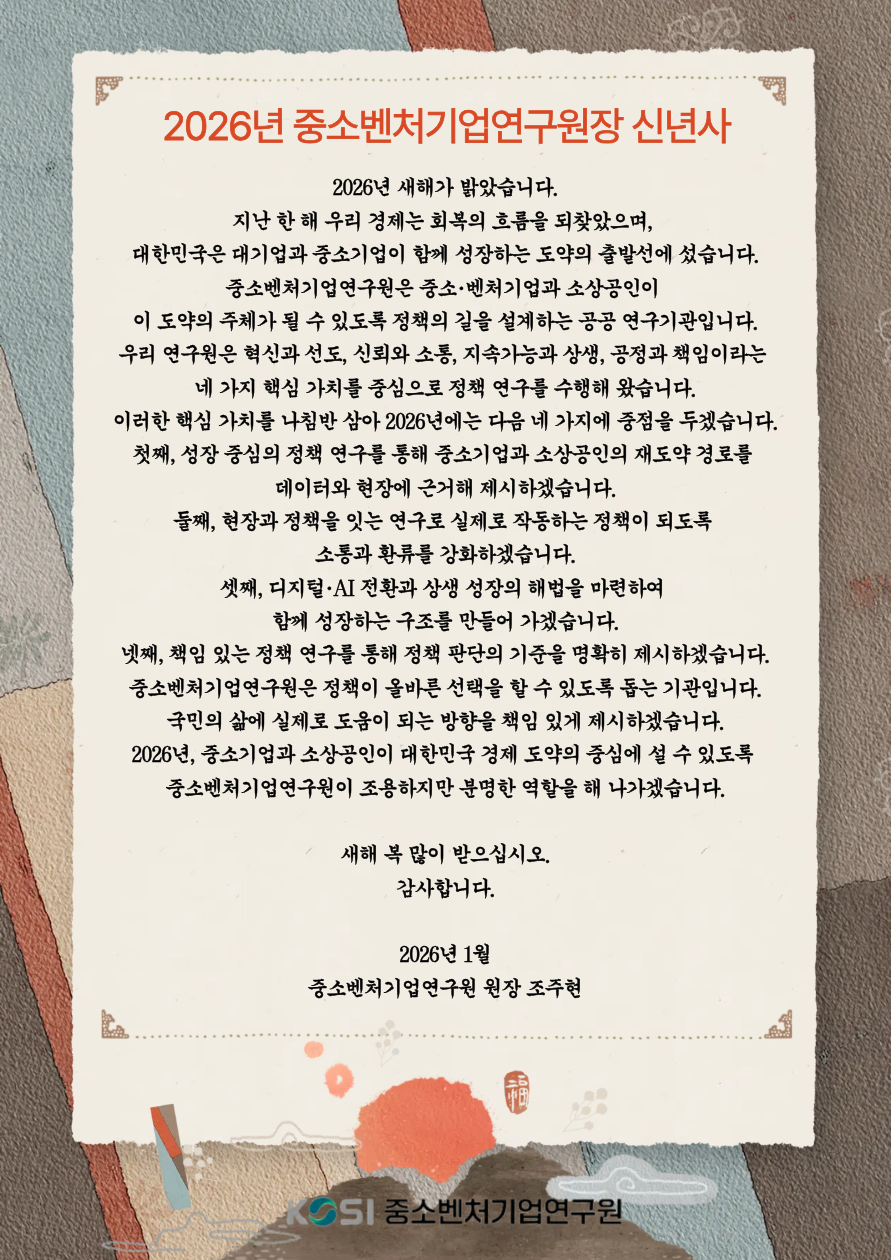 2026년 중소벤처기업연구원장 신년사
2026년 새해가 밝았습니다.
지난 한 해 우리 경제는 회복의 흐름을 되찾았으며,
대한민국은 대기업과 중소기업이 함께 성장하는 도약의 출발선에 섰습니다.
중소벤처기업연구원은 중소·벤처기업과 소상공인이
이 도약의 주체가 될 수 있도록 정책의 길을 설계하는 공공 연구기관입니다.
우리 연구원은 혁신과 선도, 신뢰와 소통, 지속가능과 상생, 공정과 책임이라는
네 가지 핵심 가치를 중심으로 정책 연구를 수행해 왔습니다.
이러한 핵심 가치를 나침반 삼아 2026년에는 다음 네 가지에 중점을 두겠습니다.
첫째, 성장 중심의 정책 연구를 통해 중소기업과 소상공인의 재도약 경로를
데이터와 현장에 근거해 제시하겠습니다.
둘째, 현장과 정책을 잇는 연구로 실제로 작동하는 정책이 되도록
소통과 환류를 강화하겠습니다.
셋째, 디지털·AI 전환과 상생 성장의 해법을 마련하여
함께 성장하는 구조를 만들어 가겠습니다.
넷째, 책임 있는 정책 연구를 통해 정책 판단의 기준을 명확히 제시하겠습니다.
중소벤처기업연구원은 정책이 올바른 선택을 할 수 있도록 돕는 기관입니다.
국민의 삶에 실제로 도움이 되는 방향을 책임 있게 제시하겠습니다.
2026년, 중소기업과 소상공인이 대한민국 경제 도약의 중심에 설 수 있도록
중소벤처기업연구원이 조용하지만 분명한 역할을 해 나가겠습니다.
새해 복 많이 받으십시오.
감사합니다.
2026년 1월
중소벤처기업연구원 원장 조주현
福
KOSI 중소벤처기업연구원